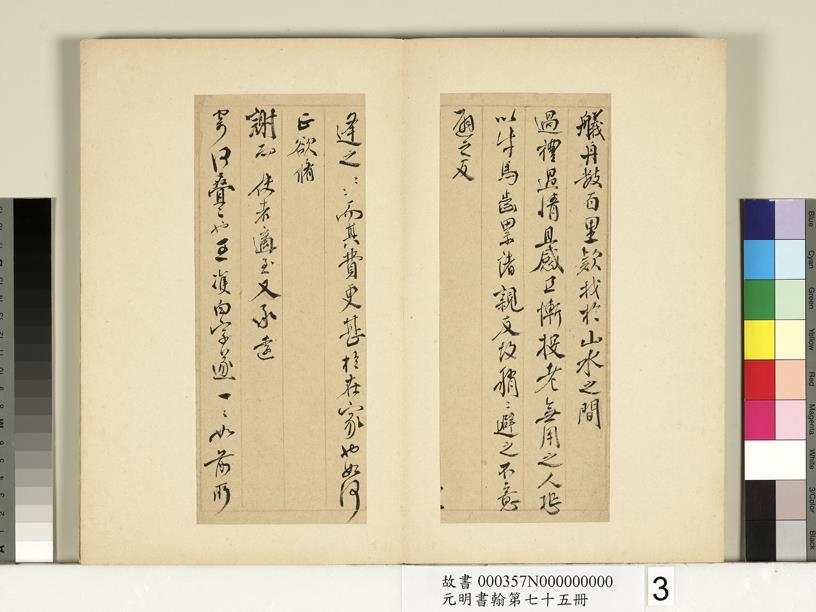 艤舟數百里欵我於山水之間
過禮過情且感且慚投老無用之人
以牛馬齒累諸親友故稍〻避之不意
避之反
逢之〻〻而其費更甚於在家也如何
正欲脩
謝而使者適至又承遠
寄何疊〻也王順白字
一〻如前所
故書 000357N000000000
元明書翰第七十五冊
3
Blue
Cyan
Green
Yellow
Red
Magenta
White
3/Color
Black